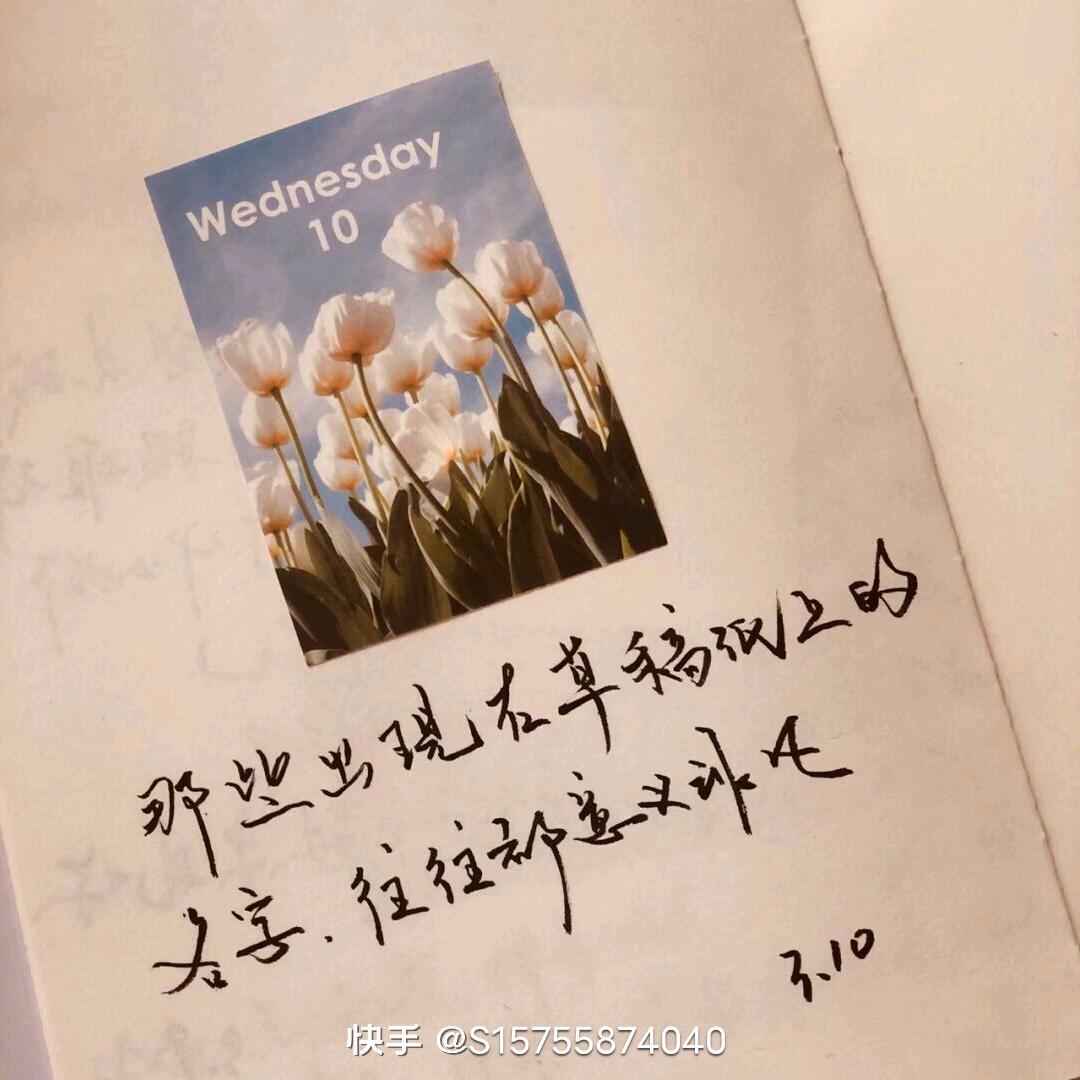 Wednesday
10
那些出现在草稿纸上的
名字.往往都意义非凡
3.10
快手 @S15755874040